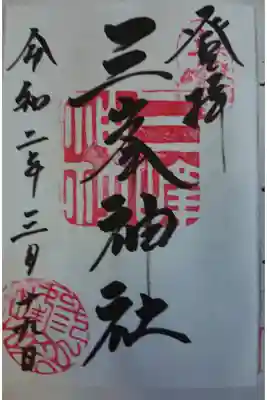 登拝
三峯神社
令和二年三月十九日